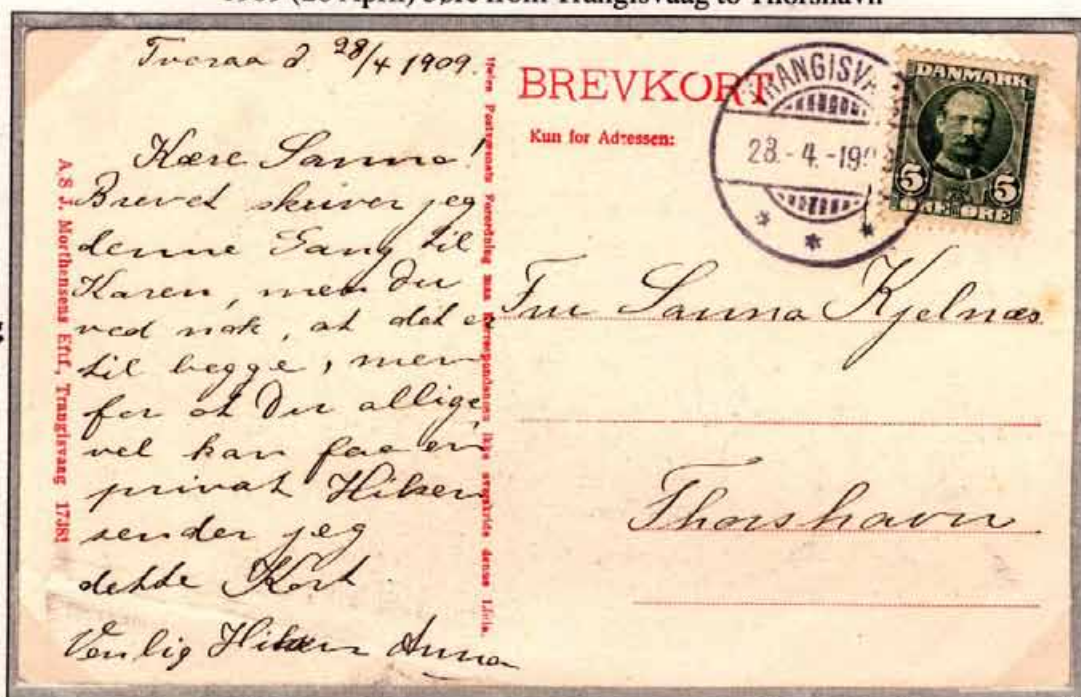 1909 (28 April) 5øre from Trangisvaag to Thorshavn
Tveraa d. 28/4 1909.
Kære Sanna!
Brevet skriver jeg
denne Gang til
Karen, men Du
ved nok, at det er
til begge, men
for at Du allige,
vel kan faa en
privat Hilsen
sender jeg
dette Kort
Venlig Hilsen Anna
A/S J. Morthensens Eftf., Trangisvang 17383
Ifølge Postvæsenets Forordning maa Korrespondancen ikke overskride denne Linie.
BREVKORT
Kun for Adressen:
TRANGISVA
28.-4.-19
DANMARK
5 5
ØRE ØRE
Fru Sanna Kjelnæs
Thorshavn